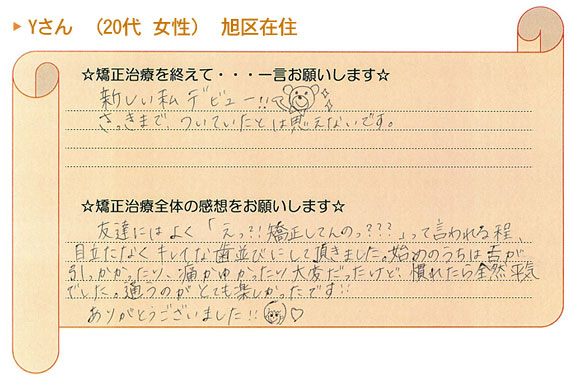 Yさん (20代 女性) 旭区在住
☆矯正治療を終えて・・・一言お願いします☆
新しい私デビュー!!
さっきまで、ついていたとは思えないです。
☆矯正治療全体の感想をお願いします☆
友達にはよく「えっ?!矯正してんのっ???」って言われる程、
目立たなくキレイな歯並びにして頂きました。始めのうちは舌が
引っかかったり、痛がゆかったり大変だったけど、慣れたら全然平気
でした。通うのがとても楽しかったです!!
ありがとうございました!!♡